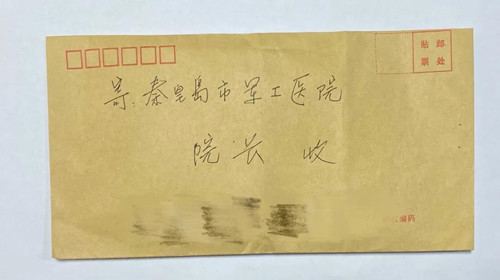 贴 邮
票 处
寄:秦皇岛市军工医院
院长 收
编码